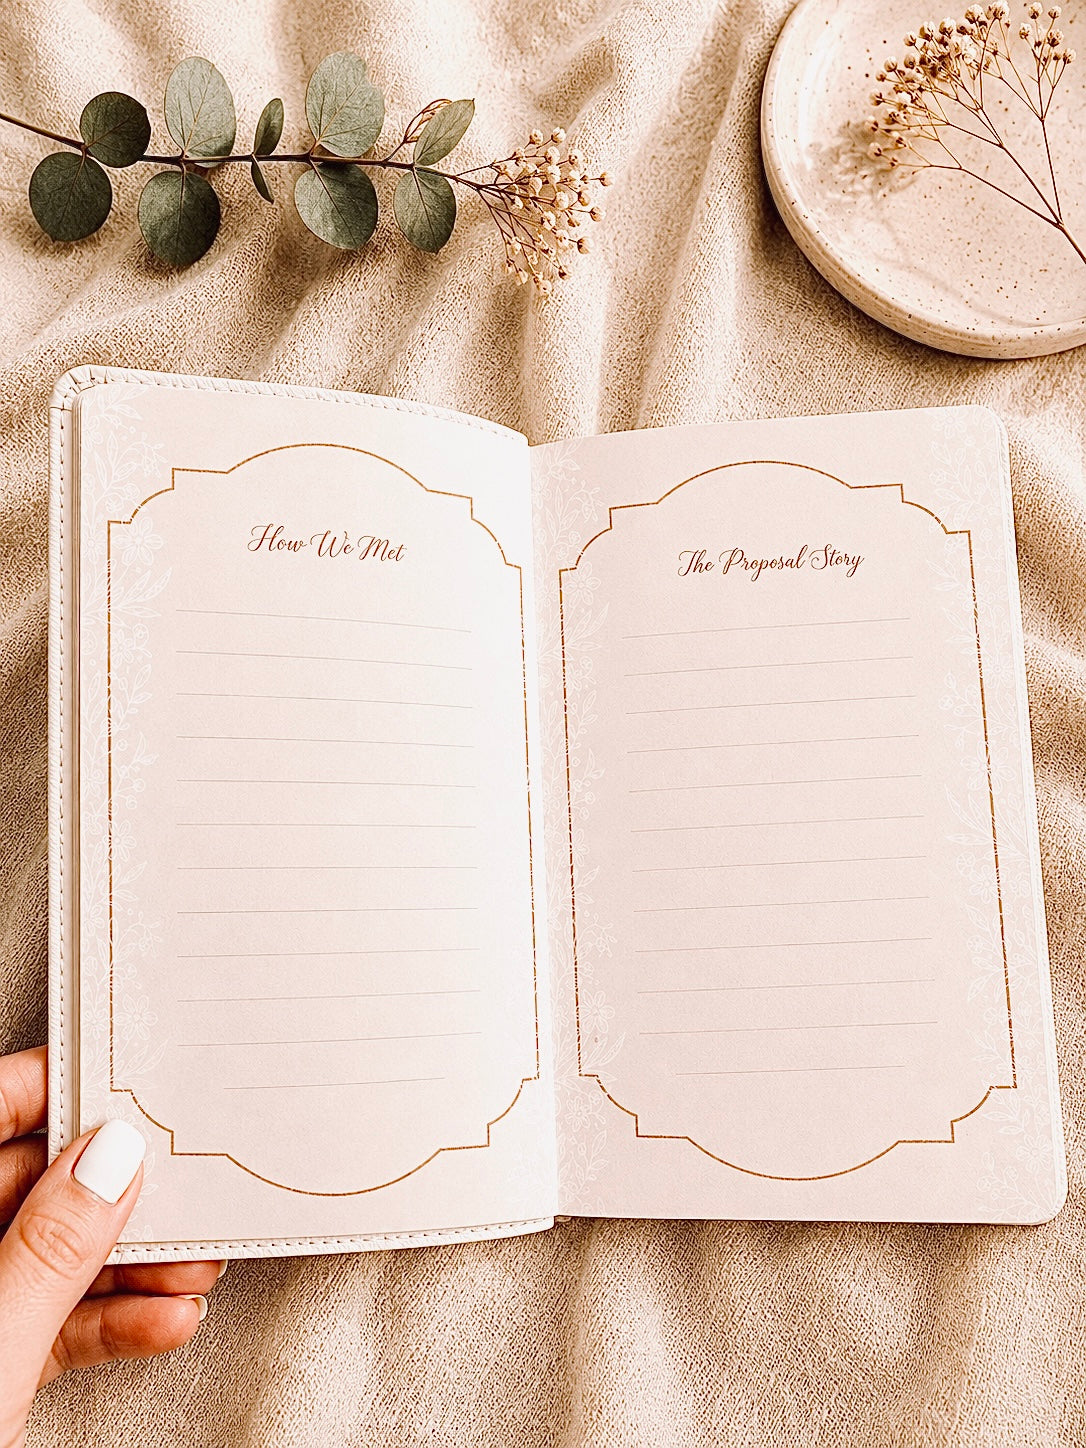 How We Met
The Proposal Story